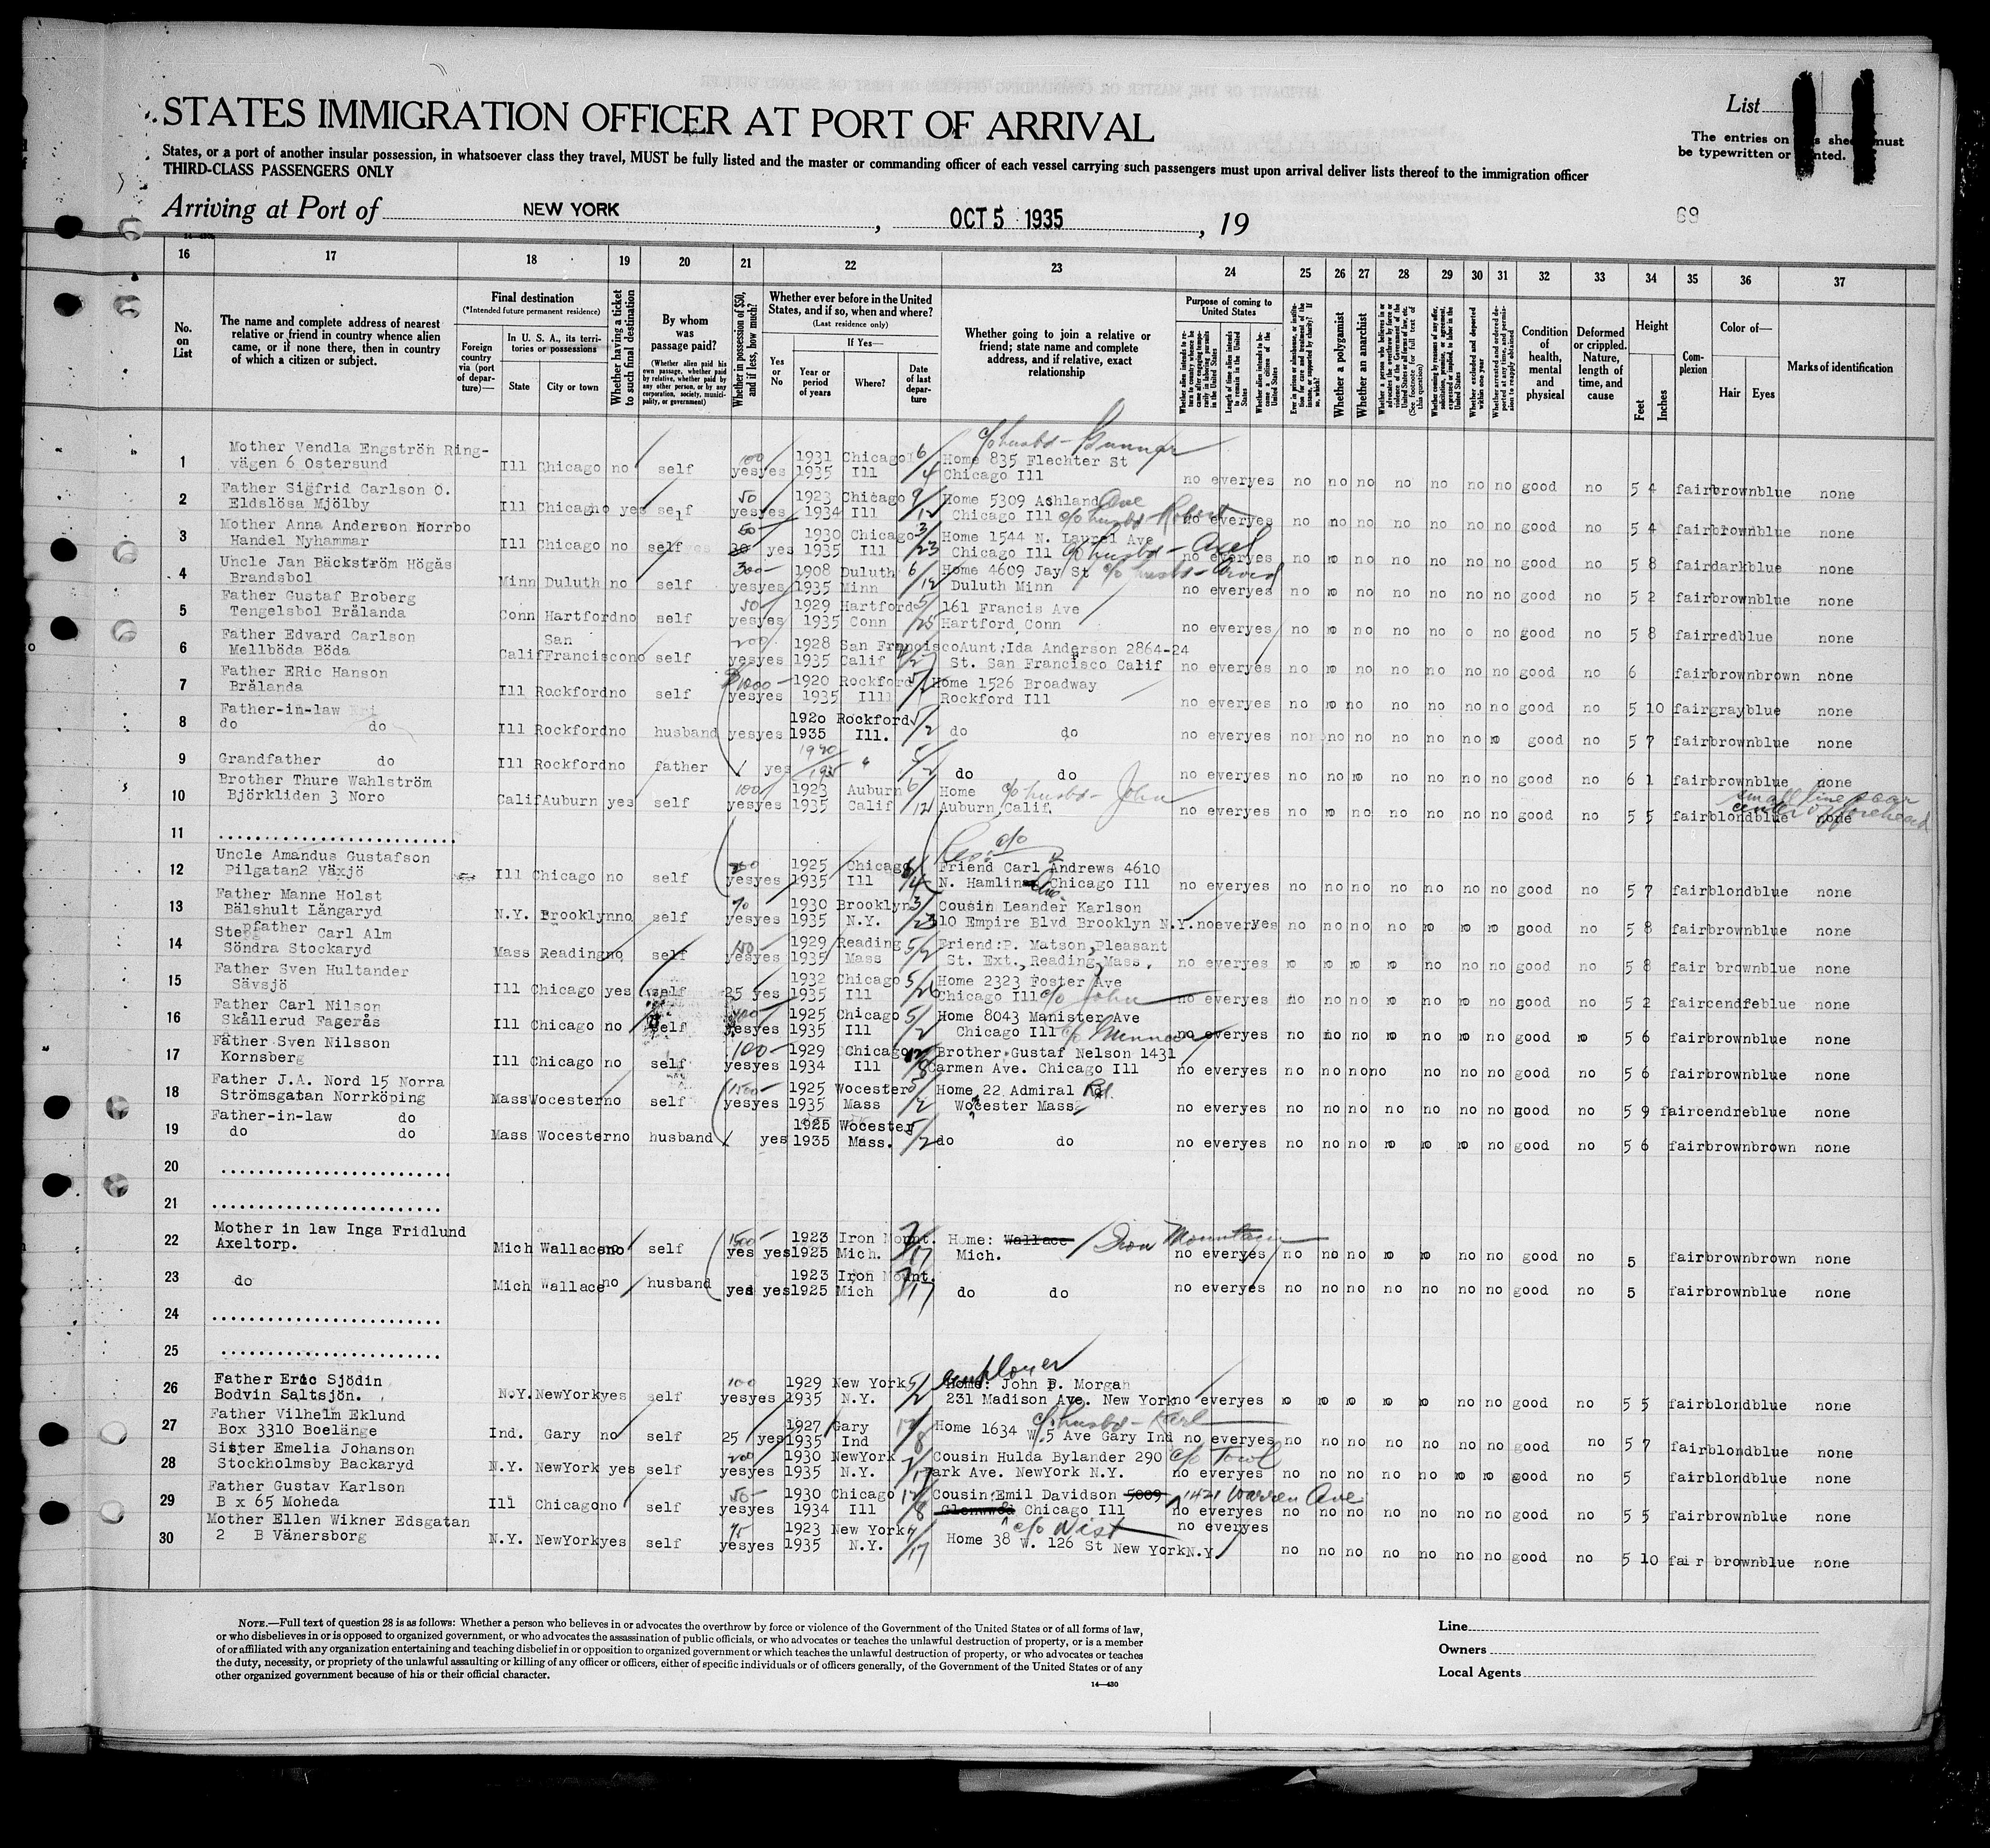 STATES IMMIGRATION OFFICER AT PORT OF ARRIVAL
List
The entries on this sheet must
be typewritten or printed.
States, or a port of another insular possession, in whatsoever class they travel, MUST be fully listed and the master or commanding officer of each vessel carrying such passengers must upon arrival deliver lists thereof to the immigration officer
THIRD-CLASS PASSENGERS ONLY
Arriving at Port of NEW YORK, OCT 5 1935, 19
69
16 17 18 19 20 21 22 23 24 25 26 27 28 29 30 31 32 33 34 35 36 37
No. on List
The name and complete address of nearest relative or friend in country whence alien came, or if none there, then in country of which a citizen or subject.
Final destination
(*Intended future permanent residence)
Foreign country via (port of departure)—
In U. S. A., its territories or possessions
State City or town
Whether having a ticket to such final destination
By whom was passage paid?
(Whether alien paid his own passage, whether paid by relative, whether paid by any other person, or by any corporation, society, municipality, or government)
Whether in possession of $50, and if less, how much?
Whether ever before in the United States, and if so, when and where?
(Last residence only)
Yes or No
If Yes—
Year or period of years
Where?
Date of last departure
Whether going to join a relative or friend; state name and complete address, and if relative, exact relationship
Purpose of coming to United States
Whether a polygamist
Whether an anarchist
Condition of health, mental and physical
Deformed or crippled. Nature, length of time, and cause
Height
Feet Inches
Complexion
Color of—
Hair Eyes
Marks of identification
1 Mother Vendla Engström Ringvägen 6 Ostersund Ill Chicago no self 100 yes yes 1931 1935 Chicago Ill 6/4 c/o husbd - Gunnar Home 835 Flechter St Chicago Ill no ever yes no no no no no no no good no 5 4 fair brown blue none
2 Father Sigfrid Carlson O. Eldslösa Mjölby Ill Chicago yes self 50 yes yes 1923 1934 Chicago Ill 9/12 Home 5309 Ashland Ave Chicago Ill c/o husbd Robert no ever yes no no no no no no no good no 5 4 fair brown blue none
3 Mother Anna Anderson Norrbo Handel Nyhammar Ill Chicago no self 50 yes 1930 1935 Chicago Ill 3/23 Home 1544 N. Laurel Ave Chicago Ill c/o husbd - Axel no ever yes no no no no no no no good no 5 8 fair brown blue none
4 Uncle Jan Bäckström Högås Brandsbol Minn Duluth no self 300 yes yes 1908 1935 Duluth Minn 6/12 Home 4609 Jay St c/o husbd - Arvid Duluth Minn no ever yes no no no no no no no good no 5 8 fair dark blue none
5 Father Gustaf Broberg Tengelsbol Brålanda Conn Hartford no self 50 yes yes 1929 1935 Hartford Conn 5/25 161 Francis Ave Hartford Conn no ever yes no no no no no no no good no 5 2 fair brown blue none
6 Father Edvard Carlson Mellböda Böda Calif San Francisco no self 200 yes yes 1928 1935 San Francisco Calif Aunt Ida Anderson 2864-24 St. San Francisco Calif no ever yes no no no no no o no good no 5 8 fair red blue none
7 Father ERic Hanson Brålanda Ill Rockford no self 1000 yes yes 1920 1935 Rockford Ill 5/2 Home 1526 Broadway Rockford Ill no ever yes no no no no no no no good no 6 fair brown brown none
8 Father-in-law do do Ill Rockford no husband yes yes 1920 1935 Rockford Ill. 5/2 do do no ever yes no no no no no no no good no 5 10 fair gray blue none
9 Grandfather do Ill Rockford no father yes 5/2 do do no ever yes no no no no no no no good no 5 7 fair brown blue none
10 Brother Thure Wahlström Björkliden 3 Noro Calif Auburn yes self 100 yes yes 1923 1935 Auburn Calif 6/12 Home c/o husbd - John Auburn Calif. no ever yes no no no no no no no good no 6 1 fair brown blue none
5 5 fair blond blue none small line scar center of forehead
11 ........................
12 Uncle Amandus Gustafson Pilgatan2 Växjö Ill Chicago no self 200 yes yes 1925 1935 Chicago Ill 6/14 c/o Friend Carl Andrews 4610 N. Hamlin Ave Chicago Ill no ever yes no no no no no no no good no 5 7 fair blond blue none
13 Father Manne Holst Bälshult Långaryd N.Y. Brooklyn no self 70 yes yes 1930 1935 Brooklyn N.Y. 3/23 Cousin Leander Karlson 10 Empire Blvd Brooklyn N.Y. no ever yes no no no no no no no good no 5 8 fair brown blue none
14 Stepfather Carl Alm Söndra Stockaryd Mass Reading no self 150 yes yes 1929 1935 Reading Mass 5/2 Friend: P. Matson, Pleasant St. Ext., Reading, Mass. no ever yes no no no no no no no good no 5 8 fair brown blue none
15 Father Sven Hultander Sävsjö Ill Chicago yes self 25 yes 1932 1935 Chicago Ill 5/26 Home 2323 Foster Ave Chicago Ill c/o John no ever yes no no no no no no no good no 5 2 fair cendre blue none
16 Father Carl Nilson Skållerud Fagerås Ill Chicago no self yes yes 1925 1935 Chicago Ill 5/2 Home 8043 Manister Ave Chicago Ill c/o Gunnar no ever yes no no no no no no no good no 5 6 fair brown blue none
17 Father Sven Nilsson Kornsberg Ill Chicago no self 100 yes yes 1929 1934 Chicago Ill 12/8 Brother Gustaf Nelson 1431 Carmen Ave. Chicago Ill no ever yes no no no no no no no good no 5 6 fair brown blue none
18 Father J.A. Nord 15 Norra Strömsgatan Norrköping Mass Wocester no self 1500 yes yes 1925 1935 Wocester Mass 5/2 Home 22 Admiral Rd. Wocester Mass no ever yes no no no no no no no good no 5 9 fair cendre blue none
19 Father-in-law do do do Mass Wocester no husband yes 1925 1935 Wocester Mass. 5/2 do do no ever yes no no no no no no no good no 5 6 fair brown brown none
20 ........................
21 ........................
22 Mother in law Inga Fridlund Axeltorp. Mich Wallace no self 1500 yes yes 1923 1925 Iron Mount. Mich. 7/17 Home: Wallace Iron Mountain Mich. no ever yes no no no no no no no good no 5 fair brown brown none
23 do Mich Wallace no husband yes yes 1923 1925 Iron Mount. Mich 7/17 do do no ever yes no no no no no no no good no 5 fair brown blue none
24 ........................
25 ........................
26 Father Eric Sjödin Bodvin Saltsjön. N.Y. NewYork yes self 100 yes yes 1929 1935 New York N.Y. 5/2 employer Home: John P. Morgan 231 Madison Ave. New York no ever yes no no no no no no no good no 5 5 fair blond blue none
27 Father Vilhelm Eklund Box 3310 Boelänge Ind. Gary no self 25 yes 1927 1935 Gary Ind 12/8 Home 1634 W.5 Ave Gary Ind c/o husbd - Karl no ever yes no no no no no no no good no 5 7 fair blond blue none
28 Sister Emelia Johanson Stockholmsby Backaryd N.Y. NewYork yes self 200 yes yes 1930 1935 NewYork N.Y. 7/17 Cousin Hulda Bylander 290 c/o Towl ark Ave. NewYork N.Y. no ever yes no no no no no no no good no 5 fair blond blue none
29 Father Gustav Karlson B x 65 Moheda Ill Chicago no self 50 yes yes 1930 1934 Chicago Ill 12/8 Cousin Emil Davidson 5009 Glenwwod 1421 Warren Ave Chicago Ill no ever yes no no no no no no no good no 5 5 fair brown blue none
30 Mother Ellen Wikner Edsgatan 2 B Vänersborg N.Y. NewYork yes self 75 yes yes 1923 1935 New York N.Y. Home 38 W. 126 St New York N.Y. c/o Nist no ever yes no no no no no no no good no 5 10 fair brown blue none
NOTE.—Full text of question 28 is as follows: Whether a person who believes in or advocates the overthrow by force or violence of the Government of the United States or of all forms of law,
or who disbelieves in or is opposed to organized government, or who advocates the assassination of public officials, or who advocates or teaches the unlawful destruction of property, or is a member
of or affiliated with any organization entertaining and teaching disbelief in or opposition to organized government or which teaches the unlawful destruction of property, or who advocates or teaches
the duty, necessity, or propriety of the unlawful assaulting or killing of any officer or officers, either of specific individuals or of officers generally, of the Government of the United States or of any
other organized government because of his or their official character.
14—430
Line
Owners
Local Agents